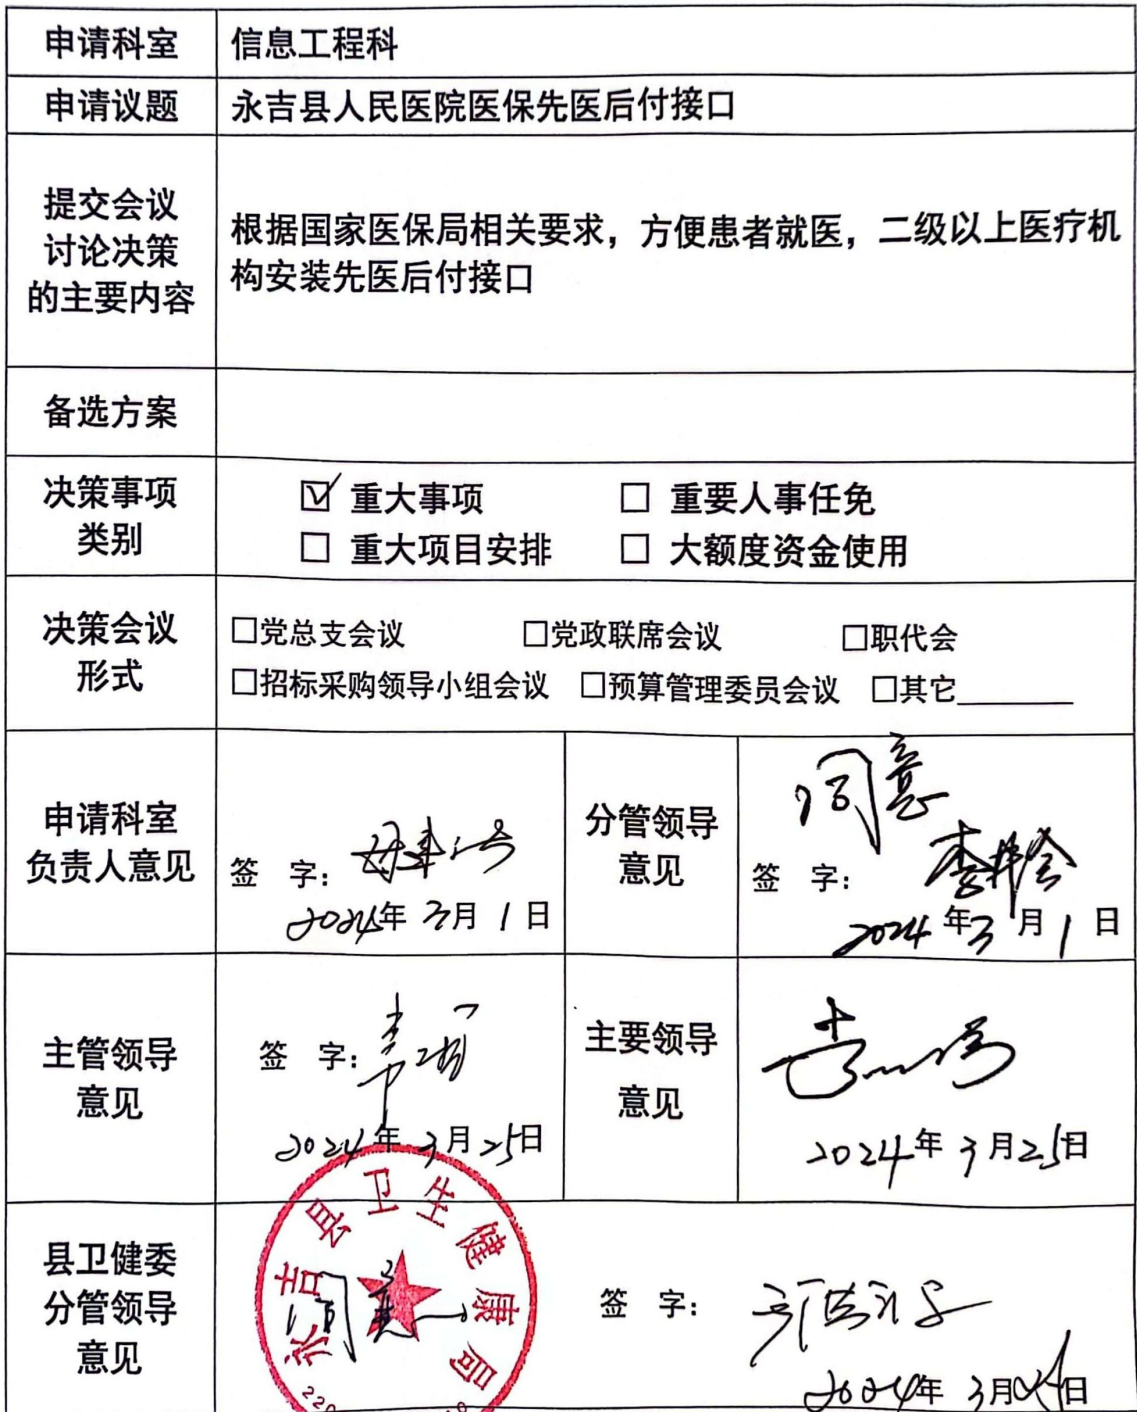 申请科室 信息工程科
申请议题 永吉县人民医院医保先医后付接口
提交会议
讨论决策
的主要内容
根据国家医保局相关要求，方便患者就医，二级以上医疗机
构安装先医后付接口
备选方案
决策事项
类别
☑ 重大事项 □ 重要人事任免
□ 重大项目安排 □ 大额度资金使用
决策会议
形式
□党总支会议 □党政联席会议 □职代会
□招标采购领导小组会议 □预算管理委员会议 □其它________
申请科室
负责人意见
签 字：
2024年 3月 1日
分管领导
意见
同意
签 字：
2024年3月1日
主管领导
意见
签 字：
2024年3月25日
主要领导
意见
2024年3月25日
县卫健委
分管领导
意见
永吉县卫生健康局
同意
签 字：
2024年 3月 日